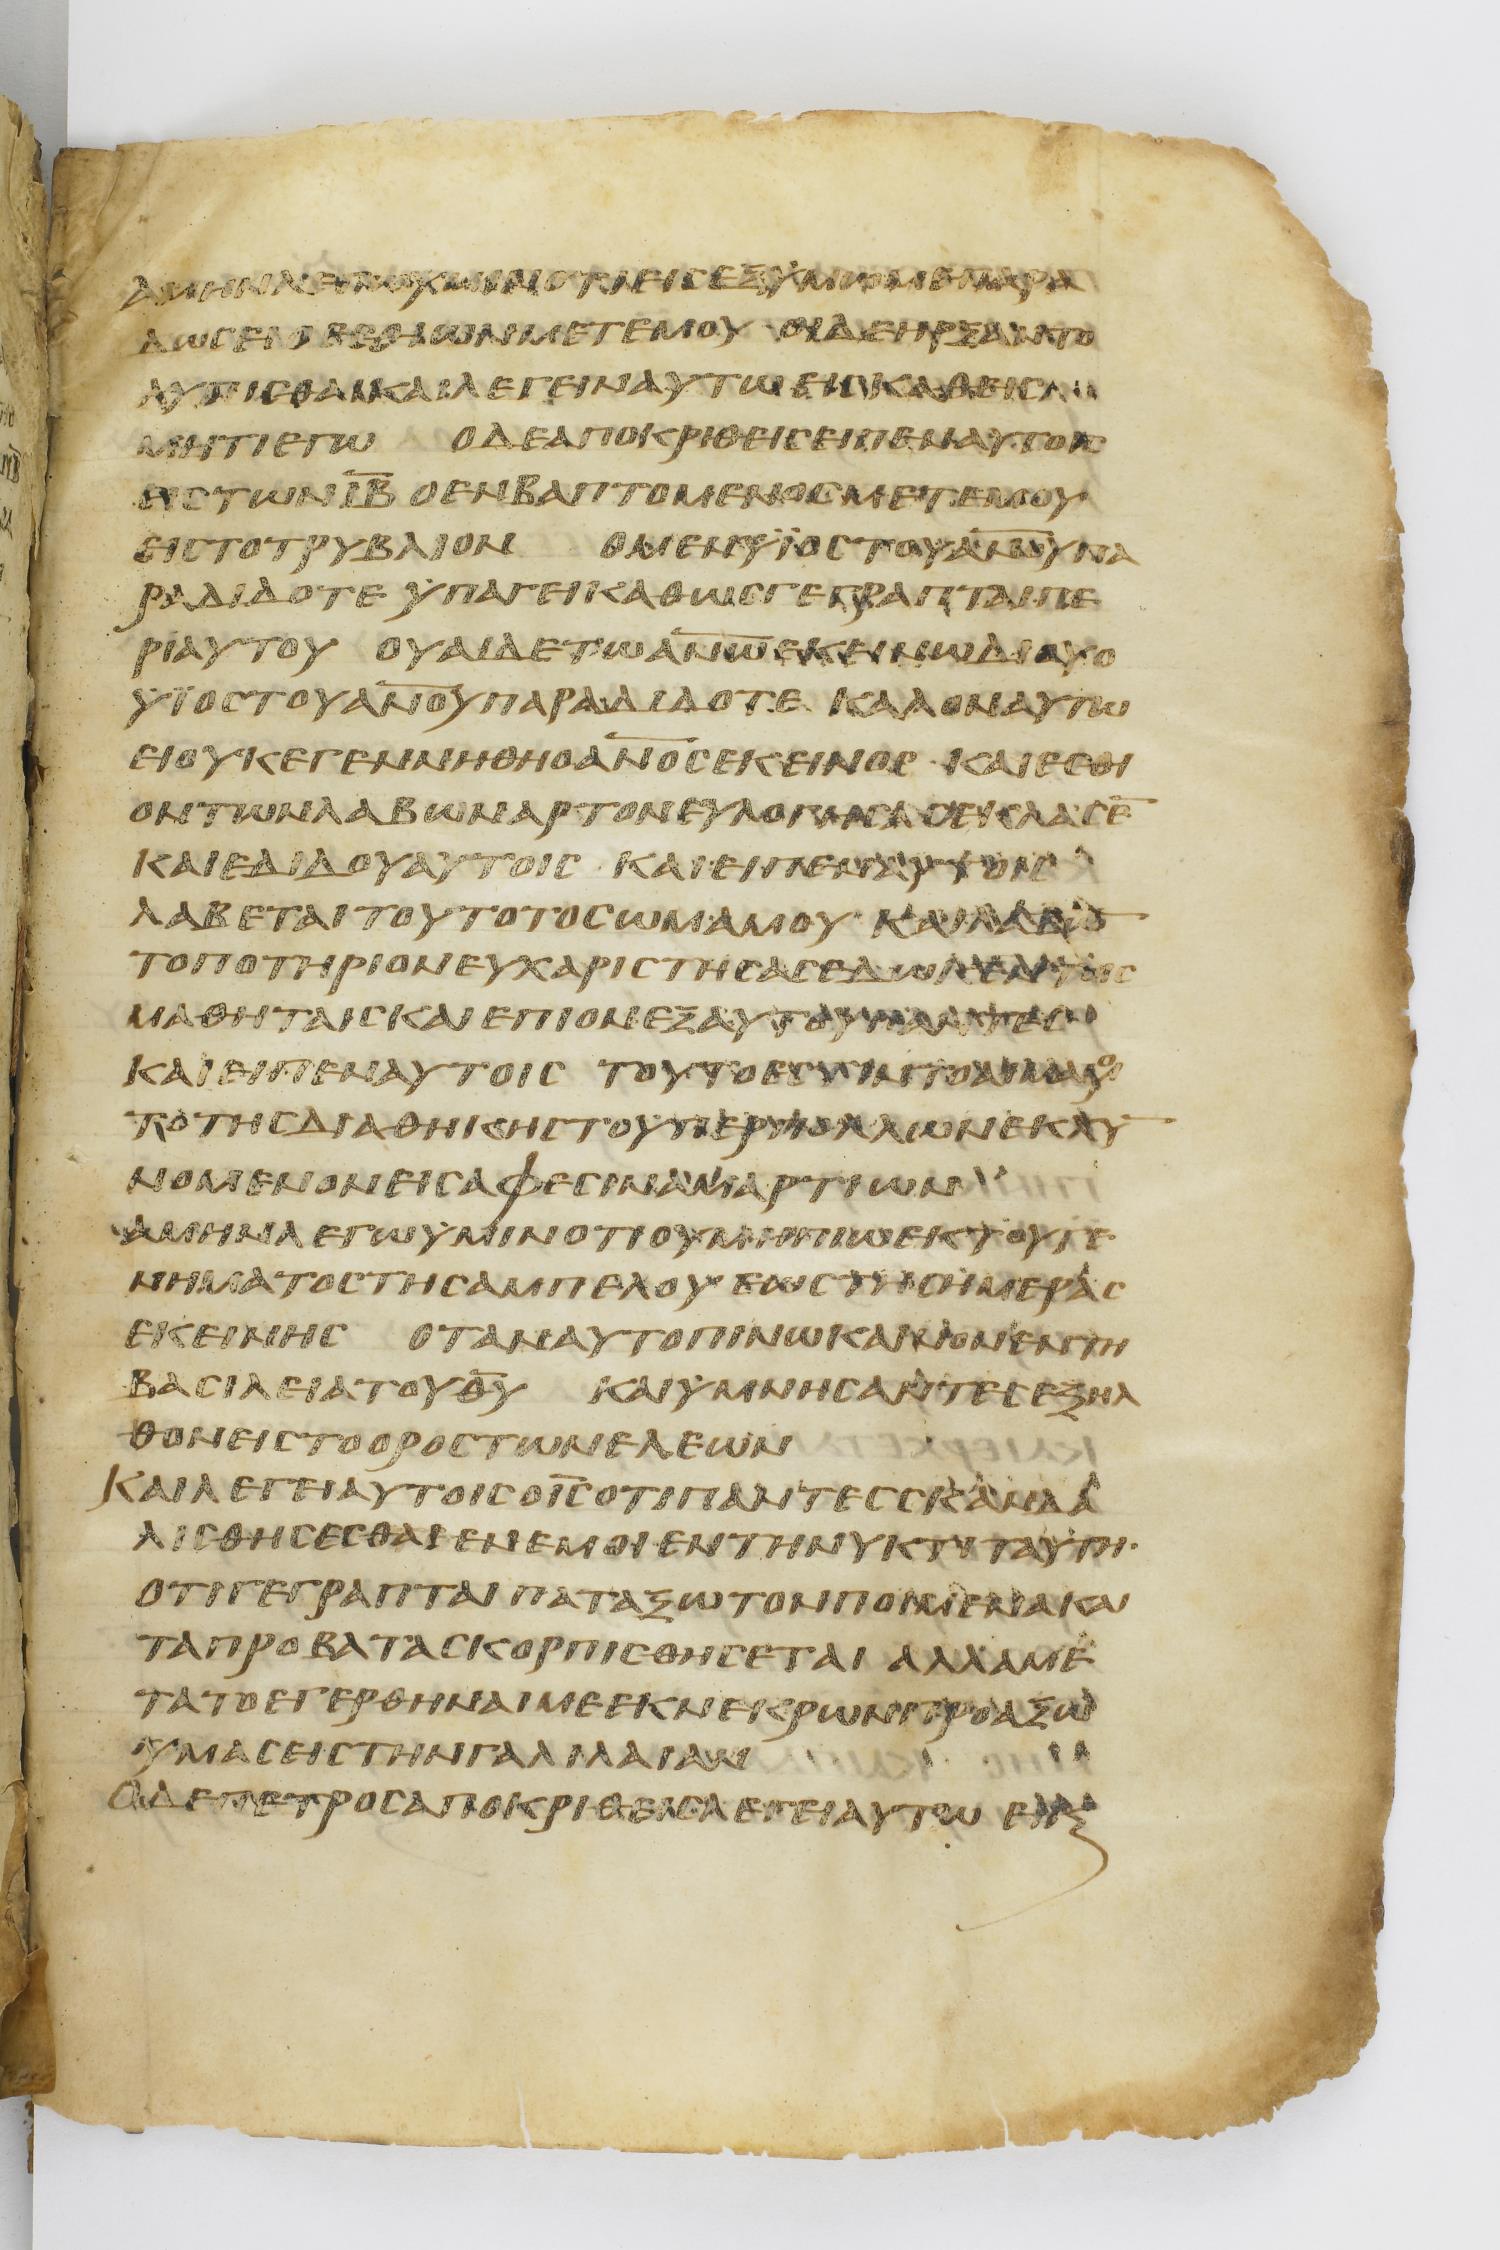 ΑΜΗΝΛΕΓΩΥΜΙΝΟΤΙΕΙΣΕΞΥΜΩΝΜΕΠΑΡΑ
ΔΩΣΕΙΟΕΣΘΙΩΝΜΕΤΕΜΟΥ ΟΙΔΕΗΡΞΑΝΤΟ
ΛΥΠΙΣΘΑΙΚΑΙΛΕΓΕΙΝΑΥΤΩΕΙΣΚΑΘΕΙΣ
ΜΗΤΙΕΓΩ ΟΔΕΑΠΟΚΡΙΘΕΙΣΕΙΠΕΝΑΥΤΟΙΣ
ΕΙΣΤΩΝΙΒ ΟΕΝΒΑΠΤΟΜΕΝΟΣΜΕΤΕΜΟΥ
ΕΙΣΤΟΤΡΥΒΛΙΟΝ ΟΜΕΝΫΪΟΣΤΟΥΑΝΟΥΠΑ
ΡΑΔΙΔΟΤΕ ΥΠΑΓΕΙΚΑΘΩΣΓΕΓΡΑΠΤΑΙΠΕ
ΡΙΑΥΤΟΥ ΟΥΑΙΔΕΤΩΑΝΩΕΚΕΙΝΩΔΙΟΥΟ
ΫΪΟΣΤΟΥΑΝΟΥΠΑΡΑΔΙΔΟΤΕ ΚΑΛΟΝΑΥΤΩ
ΕΙΟΥΚΕΓΕΝΝΗΘΗΟΑΝΟΣΕΚΕΙΝΟΣ ΚΑΙΕΣΘΙ
ΟΝΤΩΝΛΑΒΩΝΑΡΤΟΝΕΥΛΟΓΗΣΑΣΕΚΛΑΣΕ
ΚΑΙΕΔΙΔΟΥΑΥΤΟΙΣ ΚΑΙ ΕΙΠΕΝΑΥΤΟΙΣ
ΛΑΒΕΤΑΙΤΟΥΤΟΤΟΣΩΜΑΜΟΥ ΚΑΙΛΑΒΩ
ΤΟΠΟΤΗΡΙΟΝΕΥΧΑΡΙΣΤΗΣΑΣΕΔΩΚΕΝΤΟΙΣ
ΜΑΘΗΤΑΙΣΚΑΙΕΠΙΟΝΕΞΑΥΤΟΥΠΑΝΤΕΣ
ΚΑΙΕΙΠΕΝΑΥΤΟΙΣ ΤΟΥΤΟΕΣΤΙΝΤΟΑΙΜΑΜΟΥ
ΤΟΤΗΣΔΙΑΘΗΚΗΣΤΟΥΠΕΡΠΟΛΛΩΝΕΚΧΥ
ΝΟΜΕΝΟΝΕΙΣΑΦΕΣΙΝΑΜΑΡΤΙΩΝ
ΑΜΗΝΛΕΓΩΥΜΙΝΟΤΙΟΥΜΗΠΙΩΕΚΤΟΥΓΕ
ΝΗΜΑΤΟΣΤΗΣΑΜΠΕΛΟΥ ΕΩΣΤΗΣΗΜΕΡΑΣ
ΕΚΕΙΝΗΣ ΟΤΑΝΑΥΤΟΠΙΝΩΚΑΙΝΟΝΕΝΤΗ
ΒΑΣΙΛΕΙΑΤΟΥΘΥ ΚΑΙΥΜΝΗΣΑΝΤΕΣΕΞΗΛ
ΘΟΝΕΙΣΤΟΟΡΟΣΤΩΝΕΛΕΩΝ
ΚΑΙΛΕΓΕΙΑΥΤΟΙΣΟΙΣΟΤΙΠΑΝΤΕΣΣΚΑΝΔΑ
ΛΙΣΘΗΣΕΣΘΑΙΕΝΕΜΟΙΕΝΤΗΝΥΚΤΙΤΑΥΤΗ·
ΟΤΙΓΕΓΡΑΠΤΑΙΠΑΤΑΞΩΤΟΝΠΟΙΜΕΝΑΚΑΙ
ΤΑΠΡΟΒΑΤΑΣΚΟΡΠΙΣΘΗΣΕΤΑΙ ΑΛΛΑΜΕ
ΤΑΤΟΕΓΕΡΘΗΝΑΙΜΕΕΚΝΕΚΡΩΝΠΡΟΑΞΩ
ΥΜΑΣΕΙΣΤΗΝΓΑΛΙΛΑΙΑΝ
ΟΔΕΠΕΤΡΟΣΑΠΟΚΡΙΘΕΙΣΛΕΓΕΙΑΥΤΩ